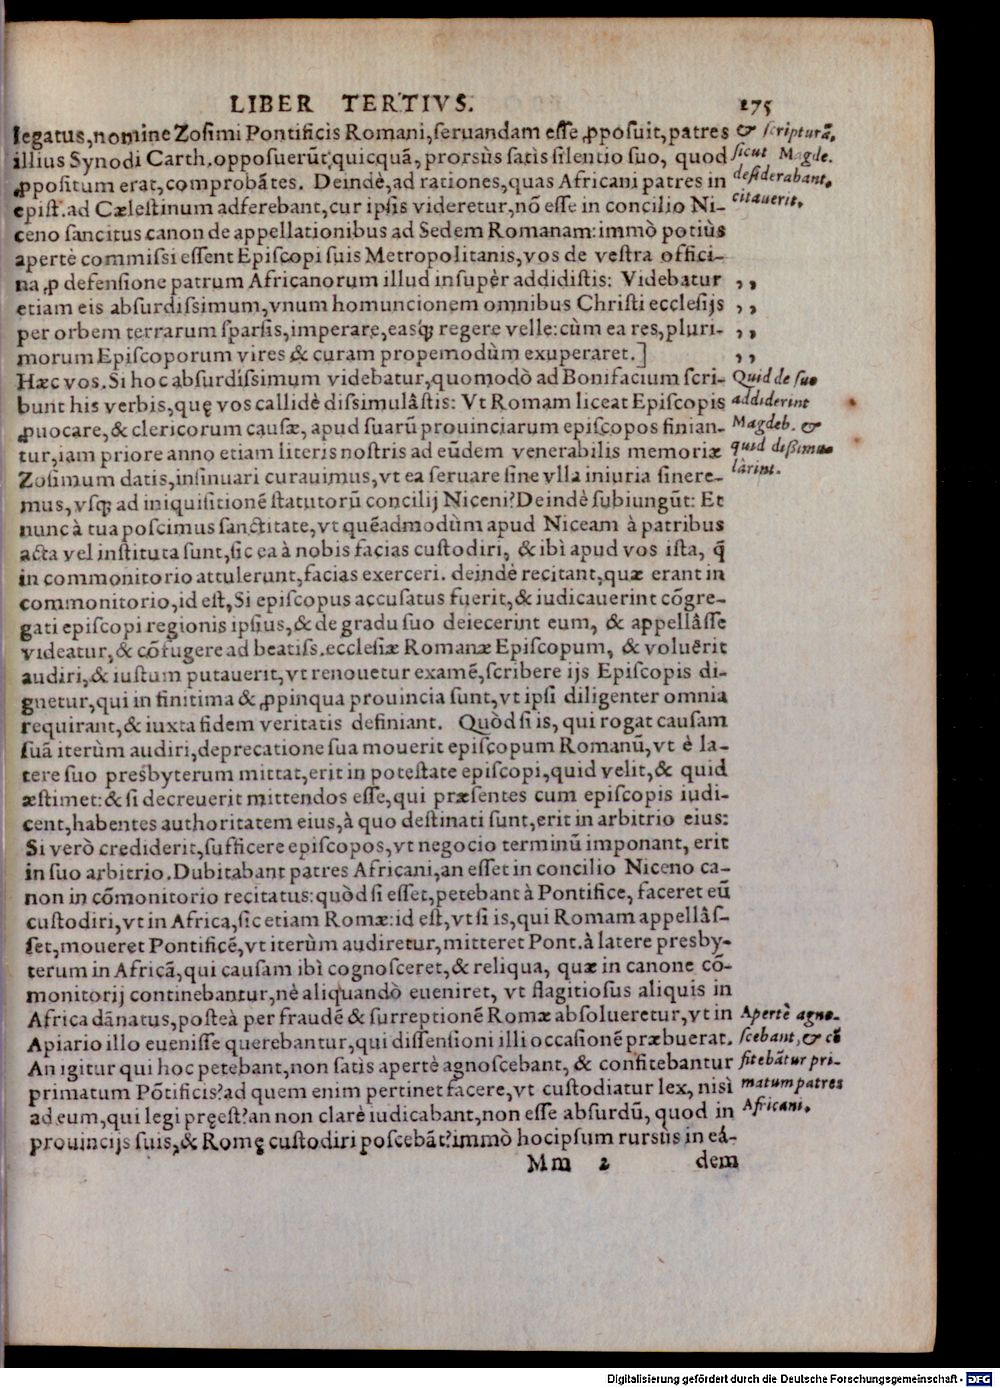 LIBER TERTIVS. 275
legatus, nomine Zosimi Pontificis Romani, seruandam esse ꝓposuit, patres
illius Synodi Carth. opposuerūt: quicquā, prorsùs satis silentio suo, quod
ꝓpositum erat, comprobātes. Deindè, ad rationes, quas Africani patres in
epist. ad Cælestinum adferebant, cur ipsis videretur, nō esse in concilio Ni-
ceno sancitus canon de appellationibus ad Sedem Romanam: immò potiùs
apertè commissi essent Episcopi suis Metropolitanis, vos de vestra offici-
na ꝓ defensione patrum Africanorum illud insupèr addidistis: Videbatur
etiam eis absurdissimum, vnum homuncionem omnibus Christi ecclesijs
per orbem terrarum sparsis, imperare, easqꝫ regere velle: cùm ea res, pluri-
morum Episcoporum vires & curam propemodùm exuperaret.]
Hæc vos. Si hoc absurdissimum videbatur, quomodò ad Bonifacium scri-
bunt his verbis, quę vos callidè dissimulâstis: Vt Romam liceat Episcopis
ꝓuocare, & clericorum causæ, apud suarū prouinciarum episcopos finian-
tur, iam priore anno etiam literis nostris ad eūdem venerabilis memoriæ
Zosimum datis, insinuari curauimus, vt ea seruare sine vlla iniuria sinere-
mus, vsqꝫ ad iniquisitionē statutorū concilij Niceni? Deindè subiungūt: Et
nunc à tua poscimus sanctitate, vt quēadmodùm apud Niceam à patribus
acta vel instituta sunt, sic ea à nobis facias custodiri, & ibì apud vos ista, q̄
in commonitorio attulerunt, facias exerceri. deindè recitant, quæ erant in
commonitorio, id est, Si episcopus accusatus fuerit, & iudicauerint cōgre-
gati episcopi regionis ipsius, & de gradu suo deiecerint eum, & appellâsse
videatur, & cōfugere ad beatiss. ecclesiæ Romanæ Episcopum, & voluērit
audiri, & iustum putauerit, vt renouetur examē, scribere ijs Episcopis di-
gnetur, qui in finitima & ꝓpinqua prouincia sunt, vt ipsi diligenter omnia
requirant, & iuxta fidem veritatis definiant. Quòd si is, qui rogat causam
suā iterùm audiri, deprecatione sua mouerit episcopum Romanū, vt è la-
tere suo presbyterum mittat, erit in potestate episcopi, quid velit, & quid
æstimet: & si decreuerit mittendos esse, qui præsentes cum episcopis iudi-
cent, habentes authoritatem eius, à quo destinati sunt, erit in arbitrio eius:
Si verò crediderit, sufficere episcopos, vt negocio terminū imponant, erit
in suo arbitrio. Dubitabant patres Africani, an esset in concilio Niceno ca-
non in cōmonitorio recitatus: quòd si esset, petebant à Pontifice, faceret eū
custodiri, vt in Africa, sic etiam Romæ: id est, vt si is, qui Romam appellâs-
set, moueret Pontificē, vt iterùm audiretur, mitteret Pont. à latere presby-
terum in Africā, qui causam ibì cognosceret, & reliqua, quæ in canone cō-
monitorij continebantur, nè aliquandò eueniret, vt flagitiosus aliquis in
Africa dānatus, posteà per fraudē & surreptionē Romæ absolueretur, vt in
Apiario illo euenisse querebantur, qui dissensioni illi occasionē præbuerat.
An igitur qui hoc petebant, non satis apertè agnoscebant, & confitebantur
primatum Pōtificis? ad quem enim pertinet facere, vt custodiatur lex, nisì
ad eum, qui legi pręest? an non clarè iudicabant, non esse absurdū, quod in
prouincijs suis, & Romę custodiri poscebāt? immò hoc ipsum rursùs in eá-
Mm 2 dem
& scripturā,
sicut Magde.
desiderabant,
citauerit.
,,
,,
,,
,,
Quid de suo
addiderint
Magdeb. &
quid dißimu
lârint.
Apertè agno-
scebant, & cō
fitebātur pri-
matum patres
Africani.
Digitalisierung gefördert durch die Deutsche Forschungsgemeinschaft - DFG